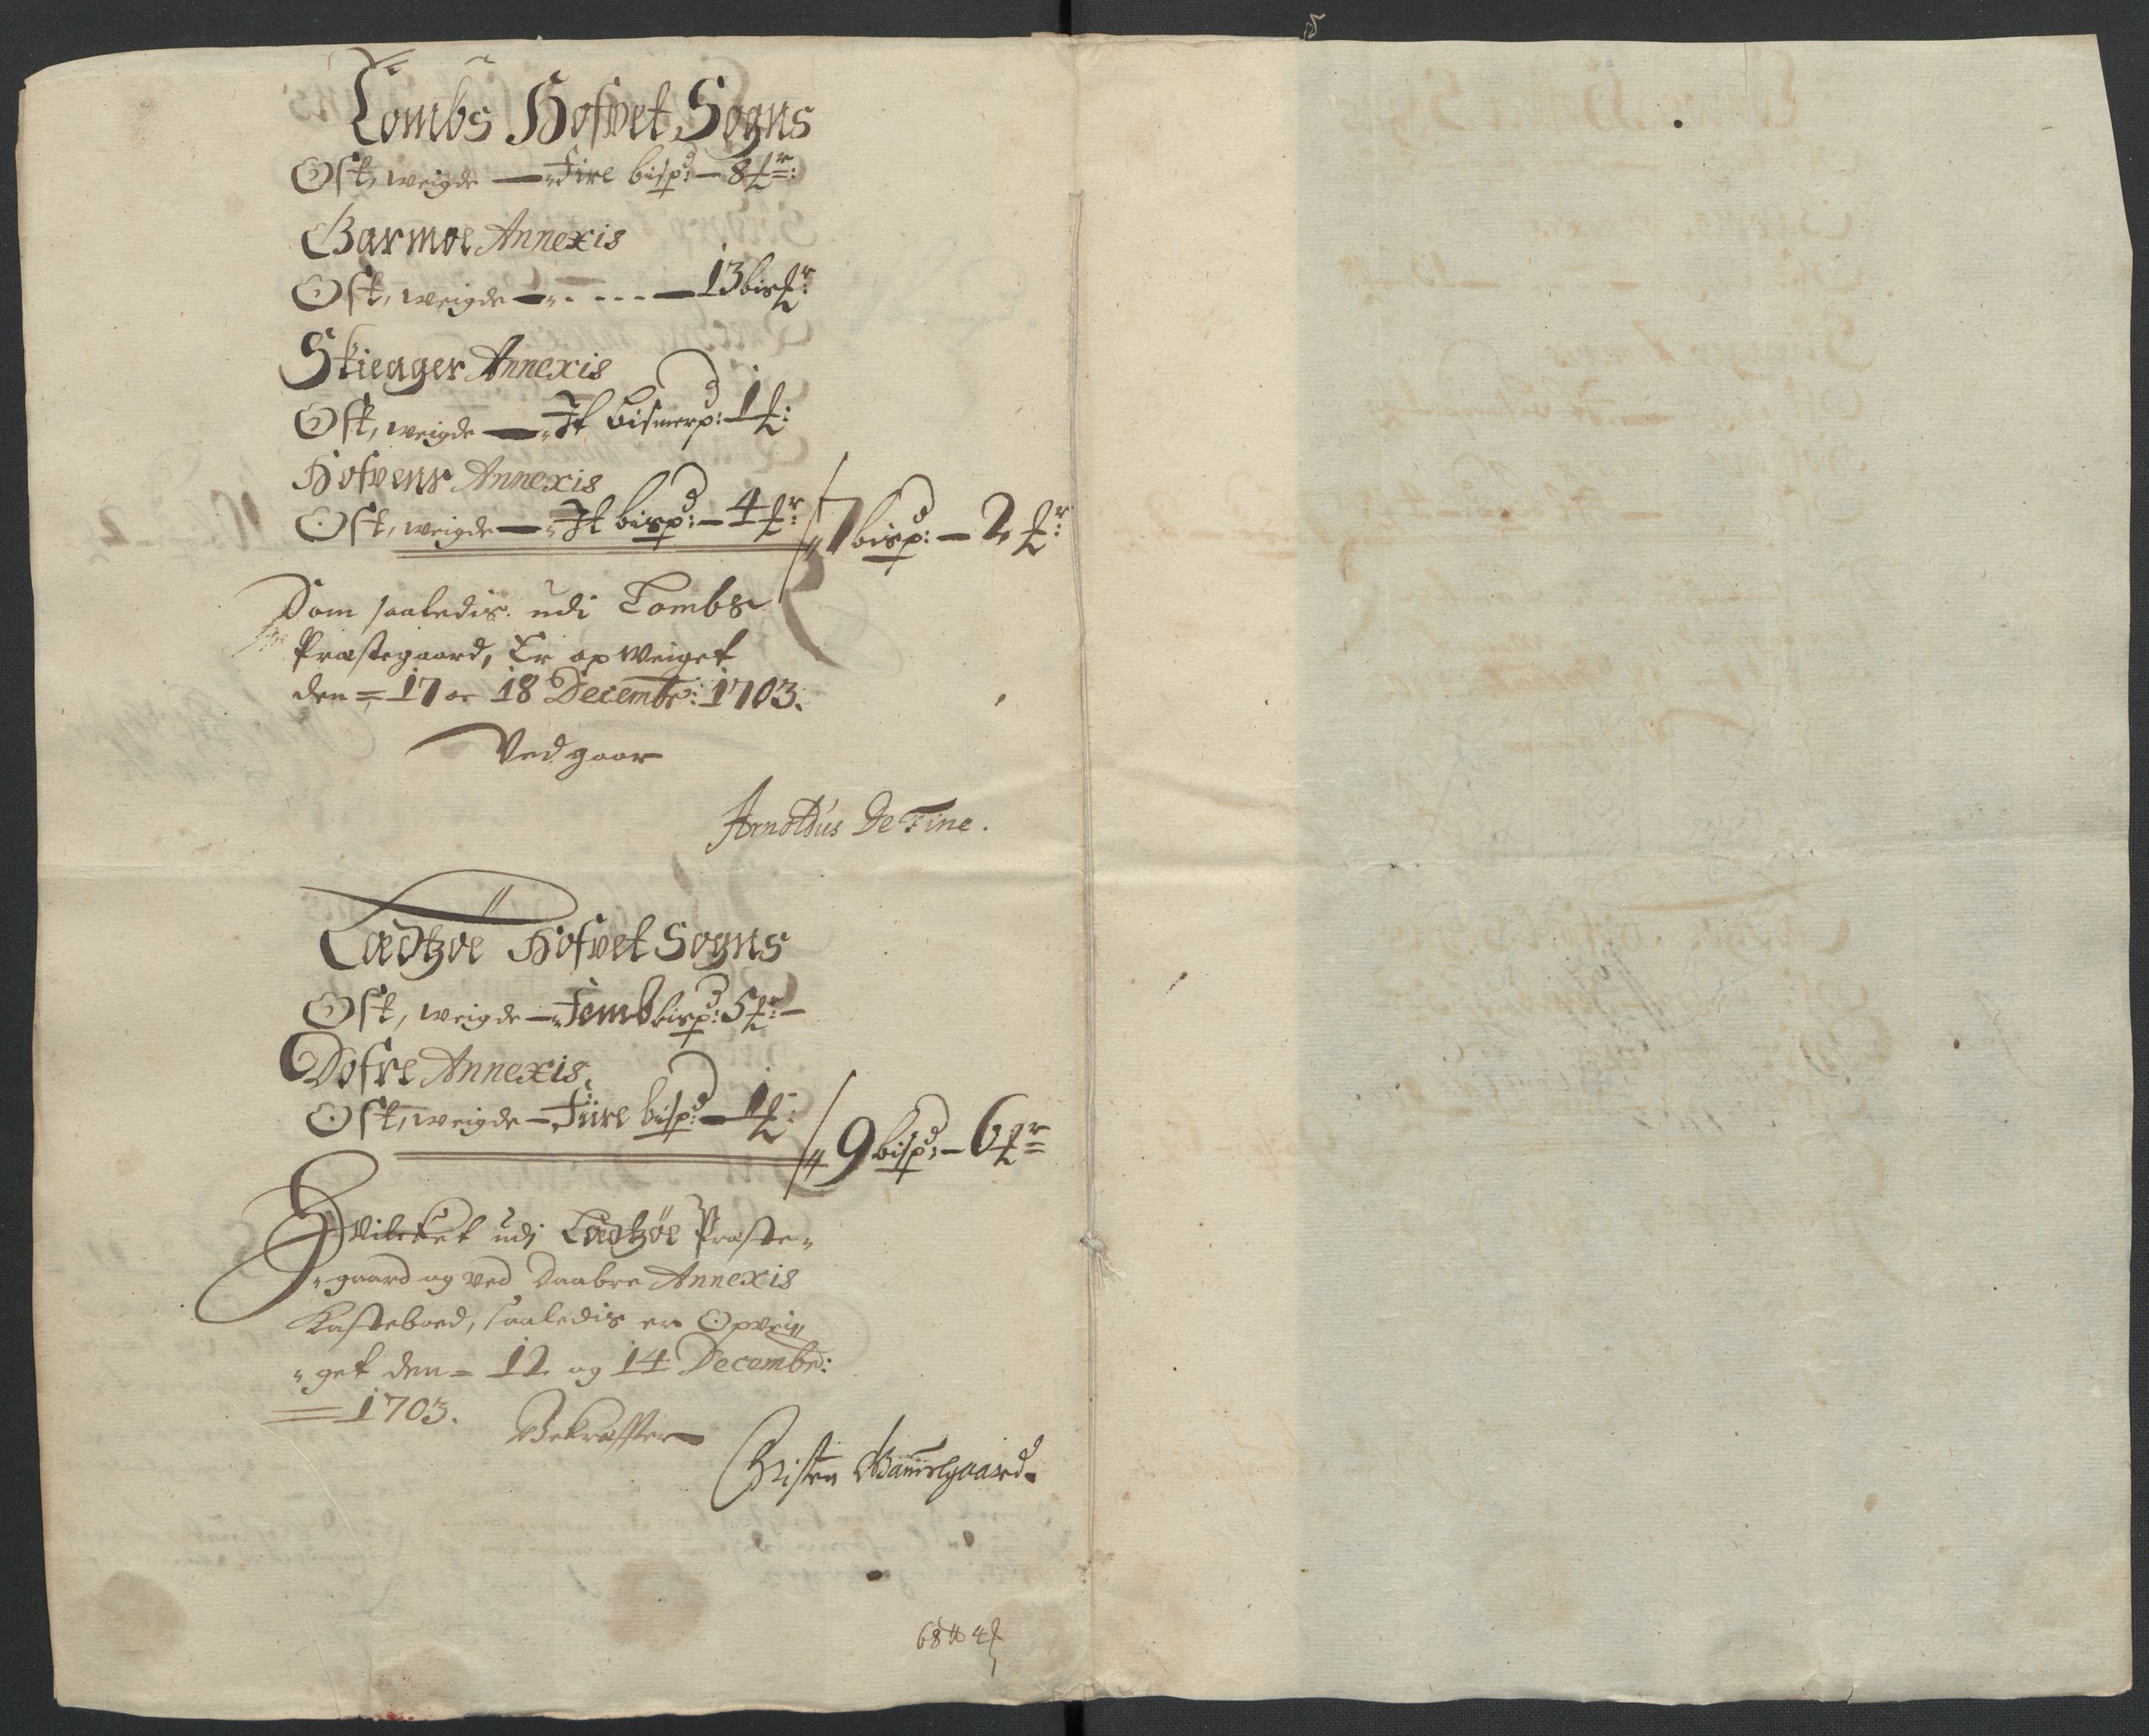 Lombs Hofvet Sogns
Ost, weigde — Fire bisp:d — 8 
Garmoe Annexis
Ost, weigde — . - - - — 13 bis
Skieager Annexis
Ost, weigde — It bismerp:d 1
Hofvens Annexis
Ost, weigde — It bisp:d — 4
7 bisp:d — 2
Som saaledis udi Lombs
Præstegaard, Er opweiget
den = 17 oc 18 Decembr: 1703.
Vedgaar
Arnoldus De Fine.
Lædtzøe Hofvet Sogns
Ost, weigde — Femb bisp:d 5
Dofre Annexis
Ost, weigde — Fiire bisp:d — 1
9 bisp:d — 6
Hvilcket udj Lædtzøe Præste„
„gaard og ved Daabre Annexis
Kasteboed, saaledis er Opvei„
„get den = 12 og 14 Decembr:
1703.
Bekræffter
Christen
68 4